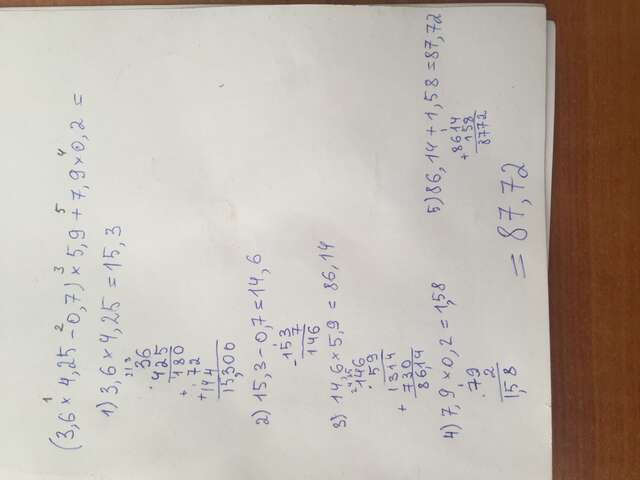 1 2 3 5 4
(3,6 × 4,25 - 0,7) × 5,9 + 7,9 × 0,2 =
1) 3,6 × 4,25 = 15,3
36
425
180
+ 72
+ 144
15,300
2) 15,3 - 0,7 = 14,6
- 153
7
146
3) 14,6 × 5,9 = 86,14
146
59
1314
+ 730
86,14
4) 7,9 × 0,2 = 1,58
79
2
1,58
5) 86,14 + 1,58 = 87,72
+ 8614
158
8772
= 87,72